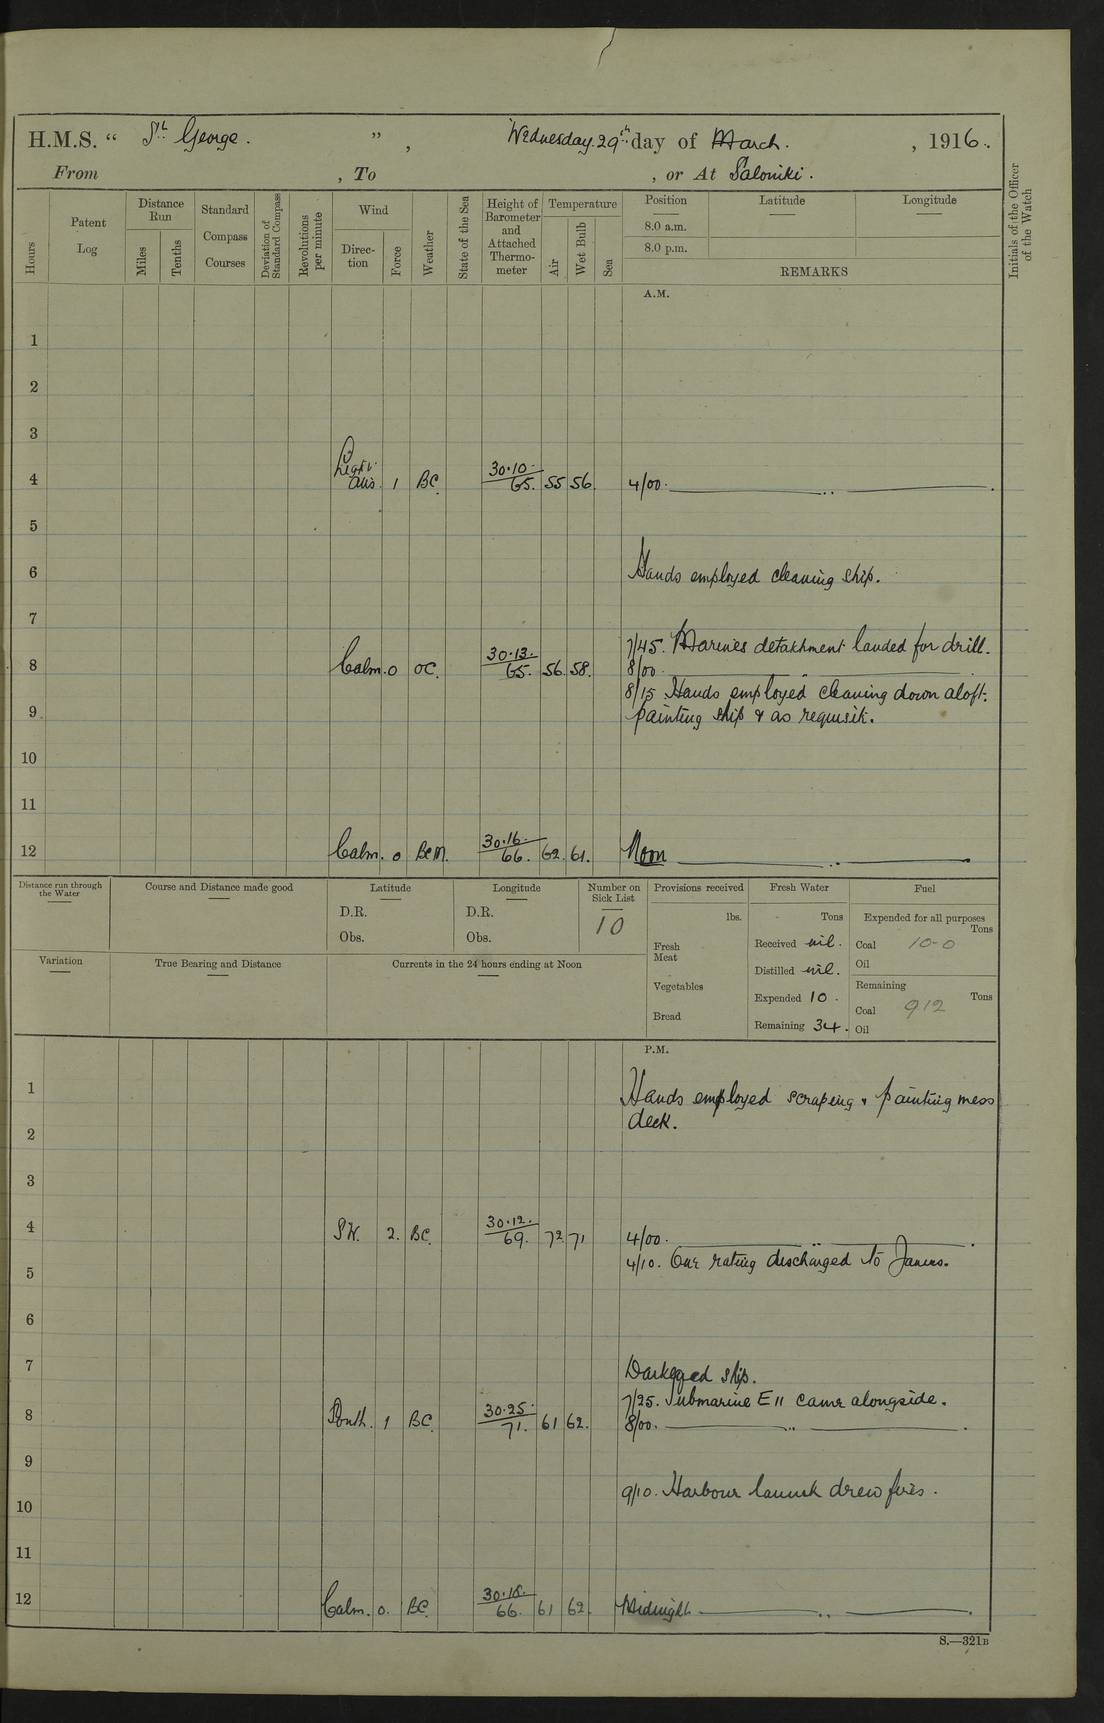 H.M.S. " St George. ", Wednesday. 29th day of March. , 1916.
From , To , or At Saloniki.
Hours
Patent Log
Distance Run
Miles
Tenths
Standard Compass Courses
Deviation of Standard Compass
Revolutions per minute
Wind
Direc-tion
Force
Weather
State of the Sea
Height of Barometer and Attached Thermo-meter
Temperature
Air
Wet Bulb
Sea
Position Latitude Longitude
8.0 a.m.
8.0 p.m.
REMARKS
Initials of the Officer of the Watch
A.M.
1
2
3
4 Light airs. 1 BC. 30.10. 65. 55 56. 4/00. "
5
6 Hands employed cleaning ship.
7
7/45. Marines detachment landed for drill.
8 Calm. 0 OC. 30.13. 65. 56. 58. 8/00. "
8/15 Hands employed cleaning down aloft.
9 painting ship & as requisite.
10
11
12 Calm. 0 BCM. 30.16. 66. 62. 61. Noon "
Distance run through the Water
Course and Distance made good
Latitude
D.R.
Obs.
Longitude
D.R.
Obs.
Number on Sick List
10
Provisions received
lbs.
Fresh Meat
Vegetables
Bread
Fresh Water
Tons
Received nil.
Distilled nil.
Expended 10.
Remaining 34.
Fuel
Expended for all purposes
Tons
Coal 10-0
Oil
Remaining
Tons
Coal 912
Oil
Variation
True Bearing and Distance
Currents in the 24 hours ending at Noon
P.M.
1 Hands employed scraping & painting mess
deck.
2
3
4 SW. 2. BC. 30.12. 69. 72. 71 4/00. "
4/10. One rating discharged to Janus.
5
6
7 Darkened ship.
7/25. Submarine E11 came alongside.
8 South. 1 BC. 30.25. 71. 61 62. 8/00. "
9
9/10. Harbour launch drew fires.
10
11
12 Calm. 0. BC. 30.18. 66. 61 62. Midnight "
S.—321B